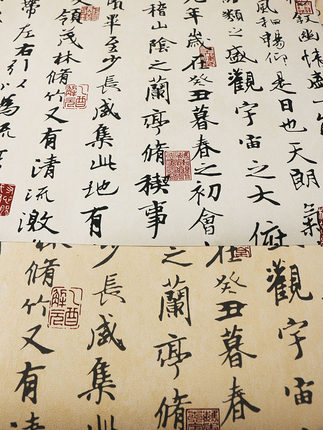 叙幽情盛一
風和暢仰是日也天朗氣
類之盛觀宇宙之大俯
年歲在癸丑暮春之初會
稽山陰之蘭亭脩禊事
畢至少長咸集此地有
領茂林脩竹又有清流激
帶左右引以為流
觀宇宙
在癸丑暮春
之蘭亭脩
少長咸集此
林脩竹又有清